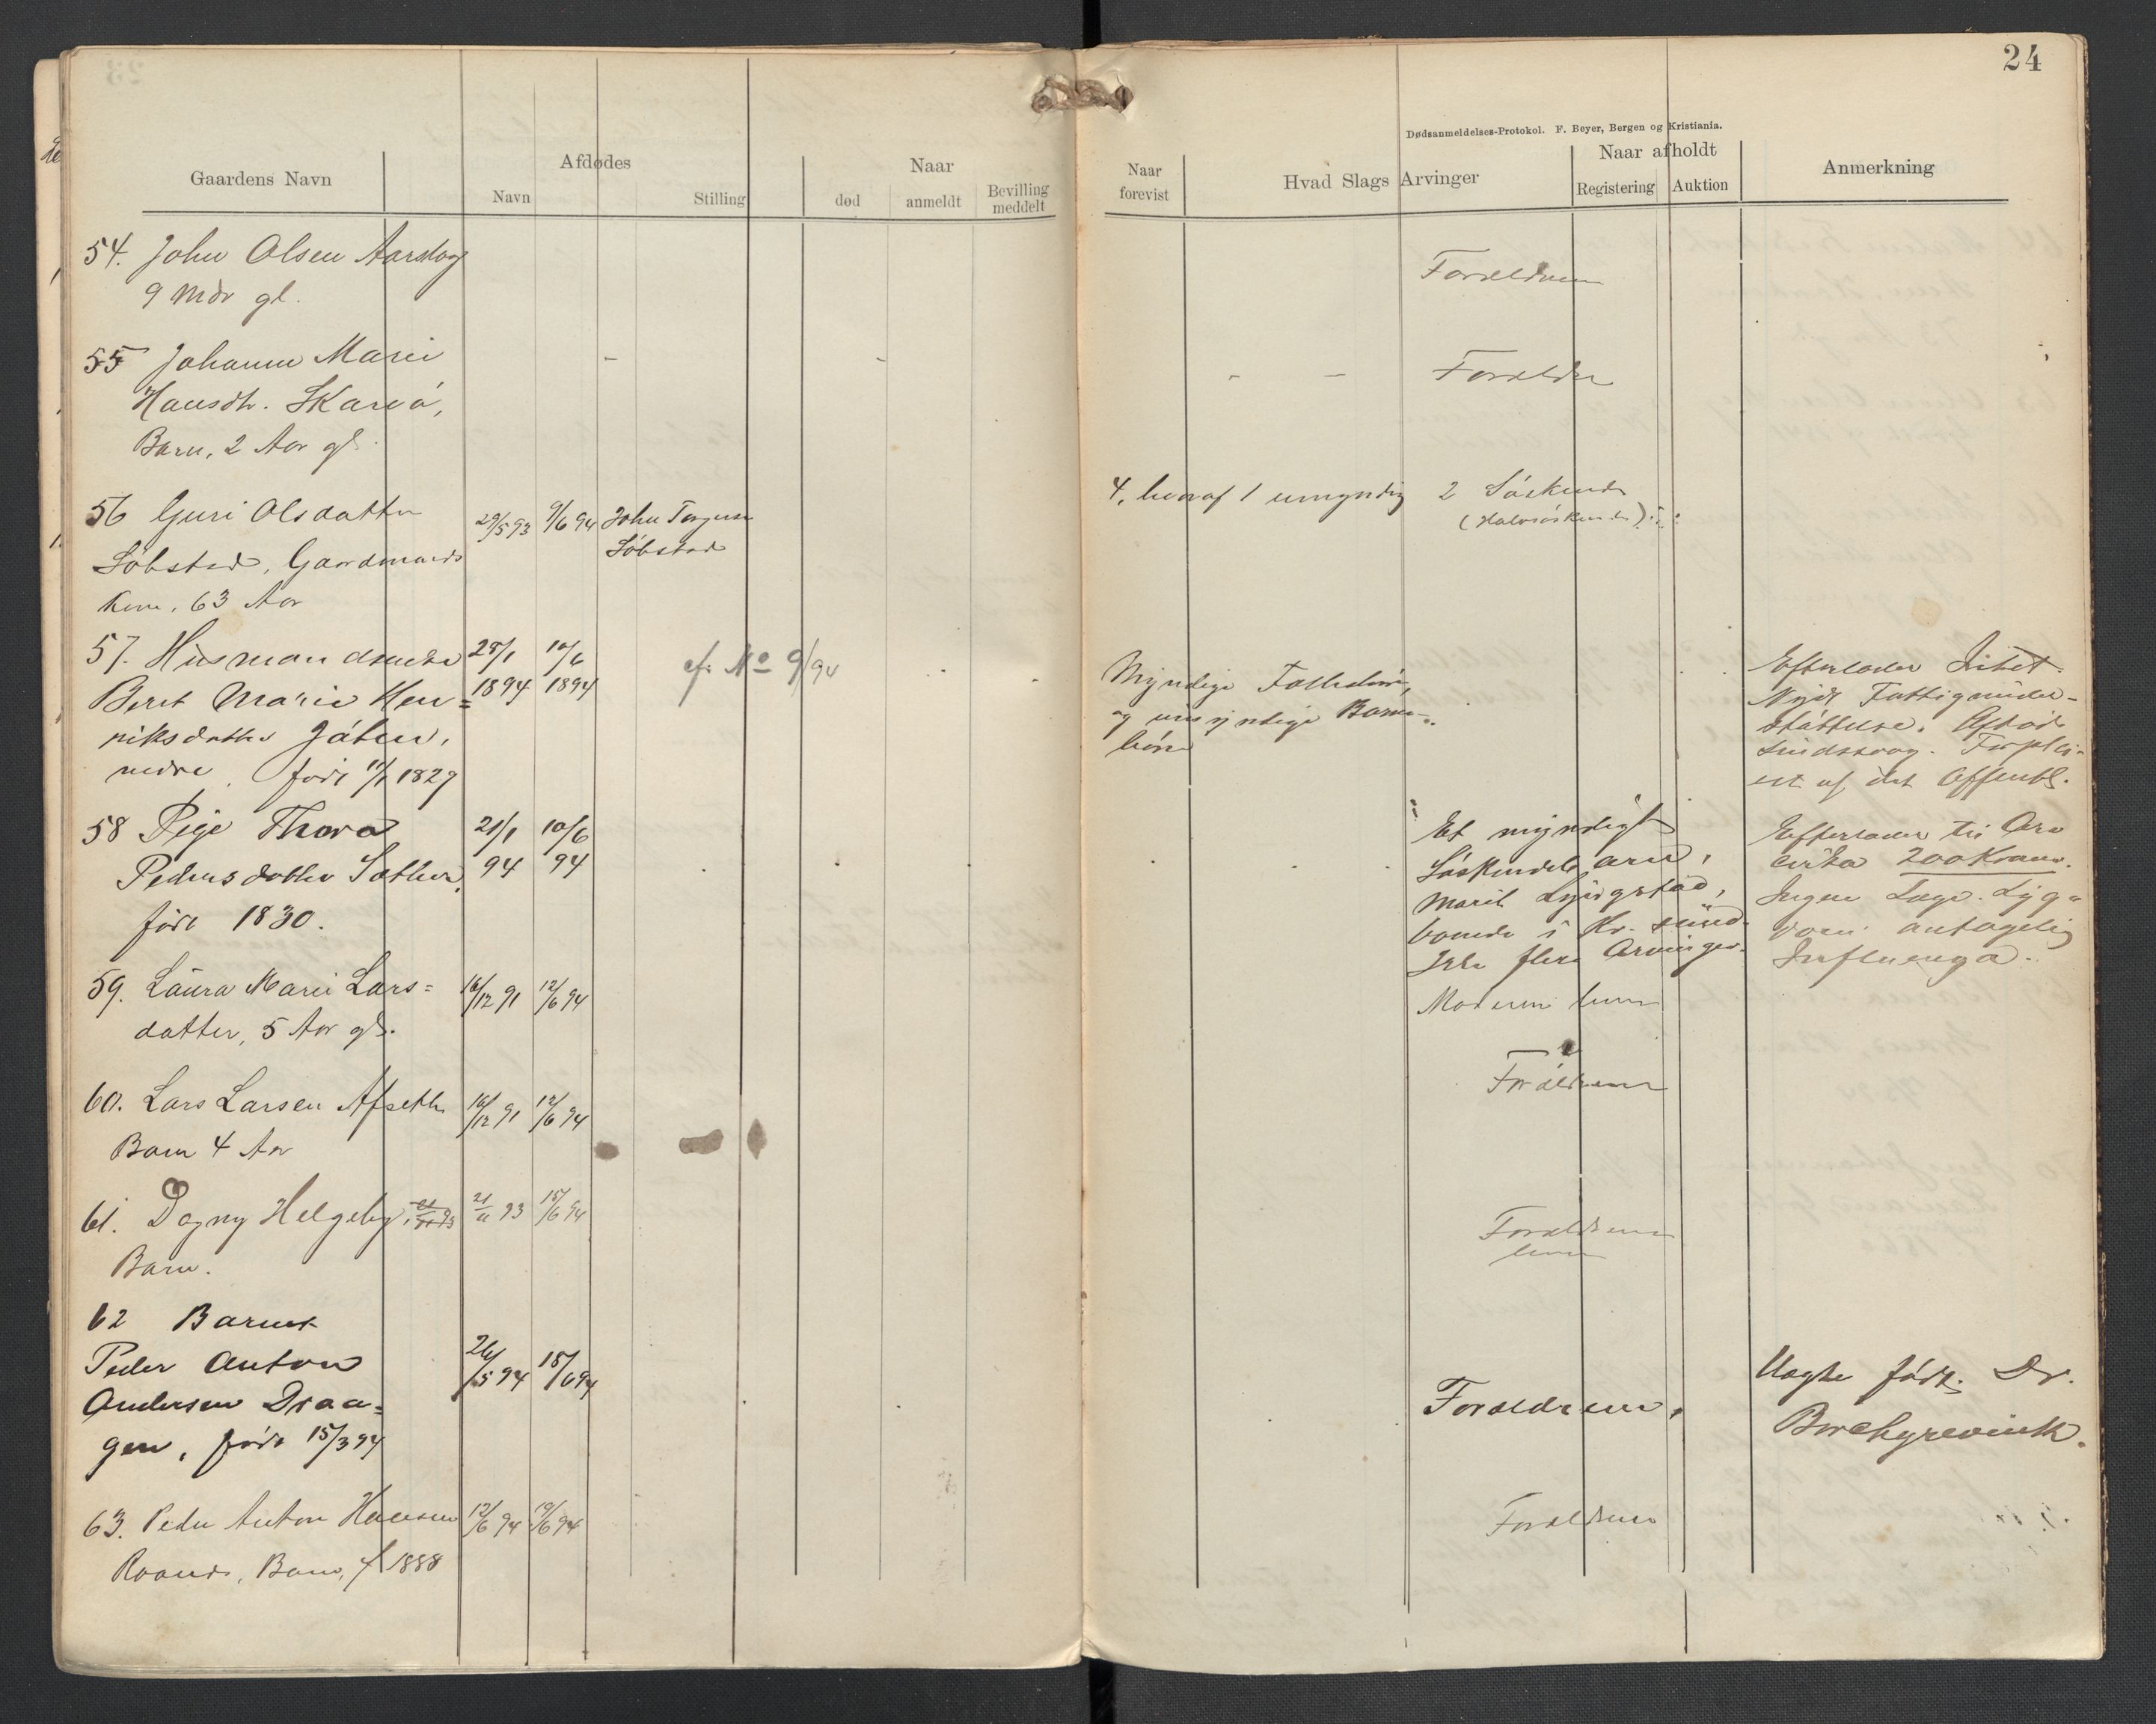 24
Dødsanmeldelses-Protokol. F. Beyer, Bergen og Kristiania.
Gaardens Navn
Afdødes
Navn
Stilling
Naar
død
anmeldt
Bevilling meddelt
Naar forevist
Hvad Slags Arvinger
Naar afholdt
Registering
Auktion
Anmerkning
54. John Olsen Aarslog
9 Mdr gl.
Forældrene
55 Johanne Marie
Hansdtr. Skarvø,
Barn, 2 Aar gl.
Forældre
56 Guri Olsdatter
Söbstad, Gaardmands
Kone, 63 Aar
29/5 93 9/6 94 John
Söbstad
4, hvoraf 1 umyndig 2 Söskende
(Halvsöskende)
57. Husmandsenke
Berit Marie Hen=
riksdatter
nedre, född 1829
28/1 1894 10/6 1894
cfr No 9/94
Myndige
og umyndige Barne-
börn
Efterlader Intet.
Nydt Fattigunder-
støttelse.
af det Offentl.
58 Pige Thora
Pedersdatter Sæther,
född 1830.
21/1 94 10/6 94
Et myndigt
Söskendebarn,
Marit
boende i Kr. sund.
Ikke flere Arvinger.
Efterlader til Arv
cirka 200 Kroner.
Ingen Læge. Syg=
dom antagelig
Influenza.
59. Laura Marie Lars=
datter, 5 Aar gl.
16/12 91 12/6 94
Moderen lever
60. Lars Larsen Afseth
Barn 4 Aar
16/12 91 12/6 94
Forældrene
61. Dagny Helgeby,
Barn.
21/11 93 15/6 94
Forældrene
lever
62 Barnet
Peder Anton
Andersen Draa=
gen, född 15/3 94
26/5 94 18/6 94
Forældrene.
Uægte född. Dr.
Borchgrevink.
63. Peder Anton Hansen
Roands, Barn, f 1888
12/6 94 19/6 94
Forældrene